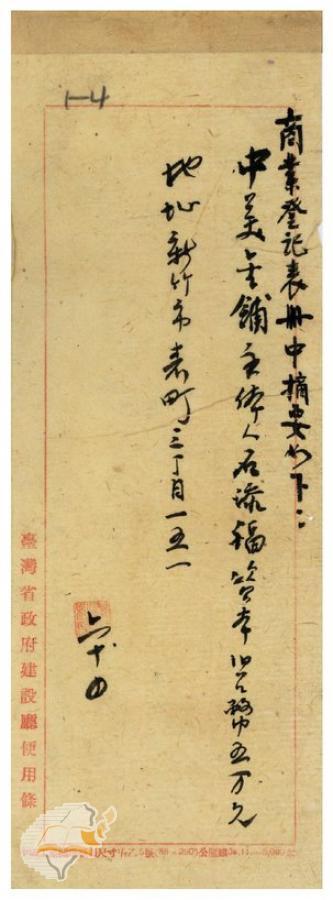 商業登記表冊中摘要如下：
中美金舖主体人石添福資本旧台幣五万元
地址新竹市表町三丁目一五一
六、十四
1-4
臺灣省政府建設廳便用條